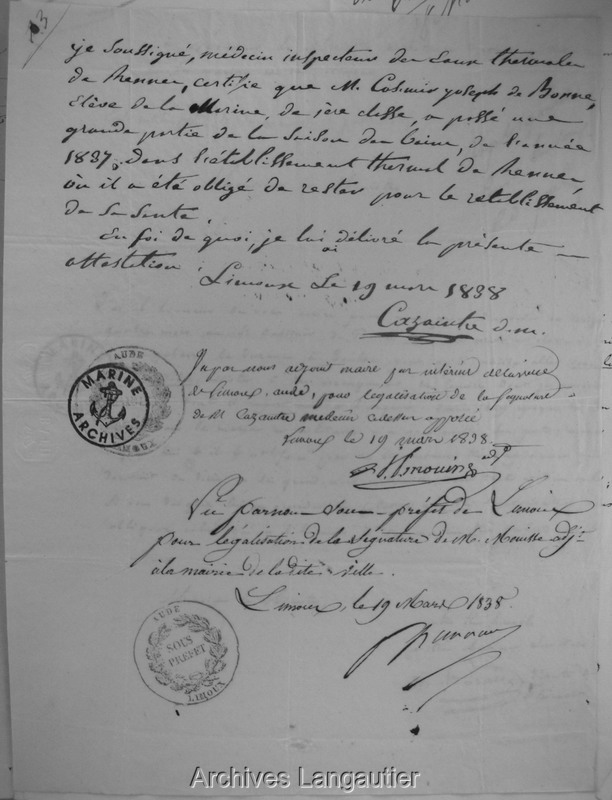 je soussigné, médecin inspecteur des Eaux thermales
de Rennes, certifie que M. Casimir joseph de Bonne,
Elève de la Marine, de 1ère classe, a passé une
grande partie de la saison des bains, de l'année
1837, dans l'établissement thermal de Rennes
où il a été obligé de rester pour le rétablissement
de sa santé.
En foi de quoi, je lui ai délivré la présente
attestation.
Limoux Le 19 mars 1838
Cazaintre d.m.
Vu par nous adjoint maire par intérieur de la ville
de Limoux, aude, pour légalisation de la signature
de M Cazaintre médecin ci dessus apposée
Limoux le 19 mars 1838
AUDE
MARINE
ARCHIVES
Vu par nous sous-préfet de Limoux
pour légalisation de la signature de M. Mouisse adjt
à la mairie de la dite ville.
Limoux, le 19 Mars 1838.
AUDE
SOUS
PREFET
LIMOUX
Archives Langautier